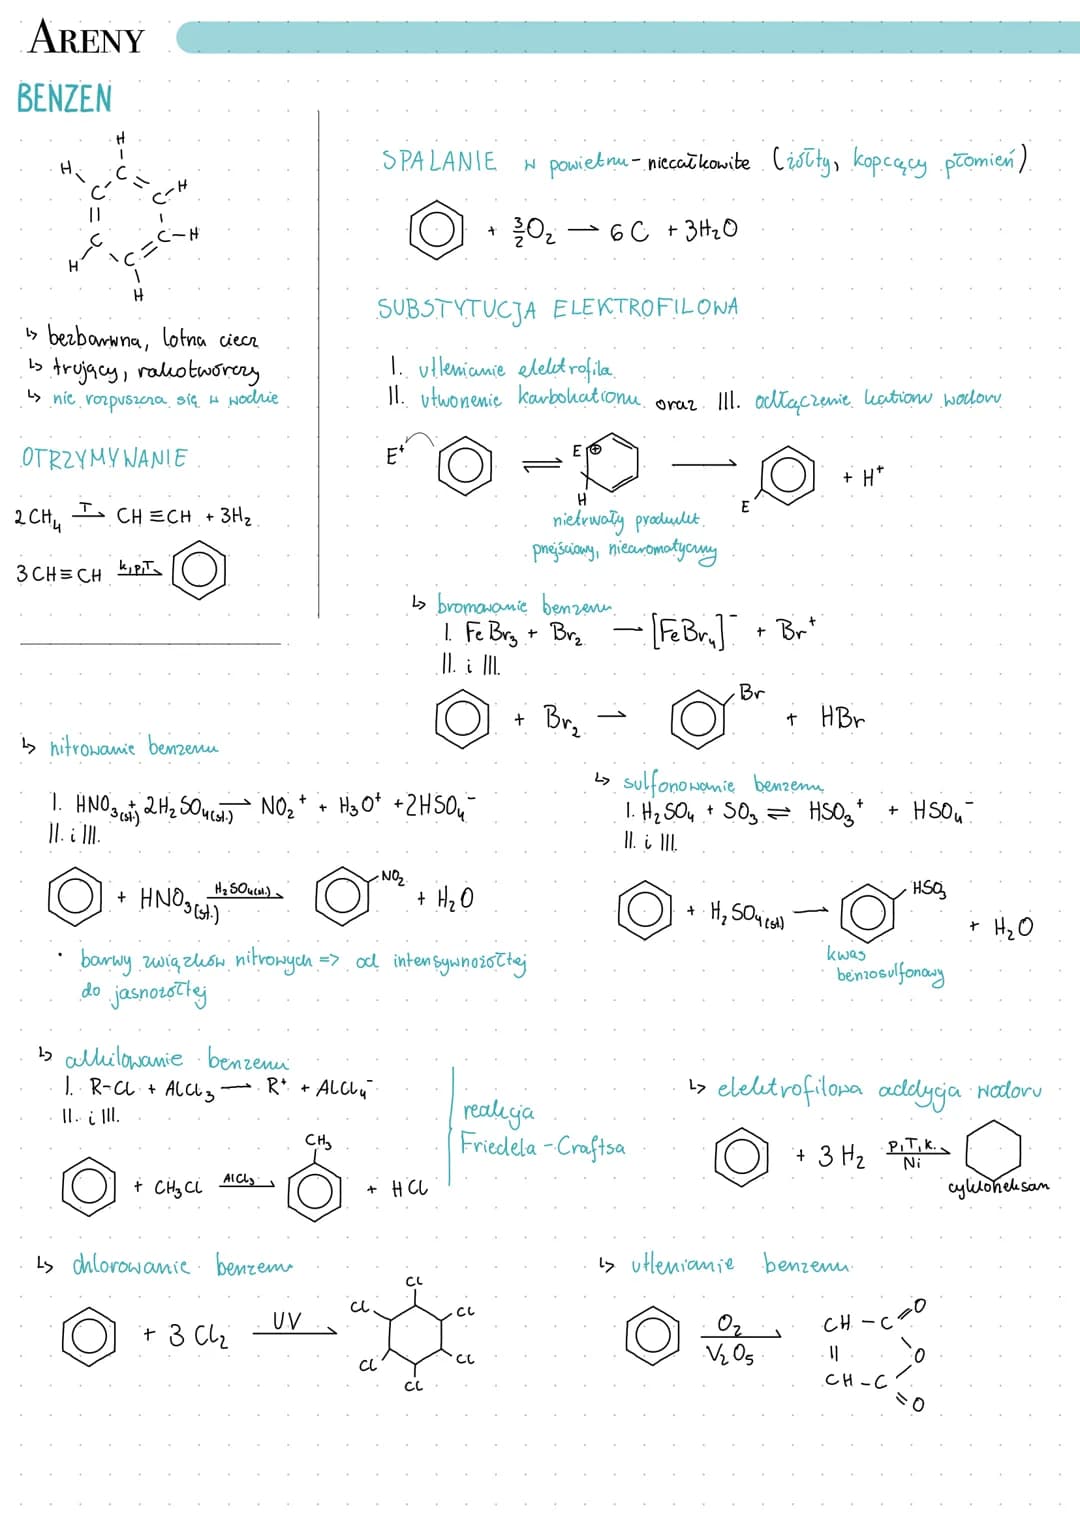 ARENY
BENZEN
H
H C C H
C C
C C - H
H C
H
↳ bezbarwna, lotna ciecz
↳ trujący, rakotwórczy
↳ nie rozpuszcza się w wodzie
OTRZYMYWANIE
2CH₄ T→ CH≡CH + 3H₂
3CH≡CH k,p,T→
SPALANIE w powietrzu - niecałkowite (żółty, kopcący płomień)
+ 3/2 O₂ → 6C + 3H₂O
SUBSTYTUCJA ELEKTROFILOWA
I. utlenianie elektrofila
II. utworzenie karbokationu oraz III. odłączenie kationu wodoru
E⁺ ⇌ E ⊕ H → E + H⁺
nietrwały produkt
przejściowy, niearomatyczny
↳ bromowanie benzenu
I. FeBr₃ + Br₂ → [FeBr₄]⁻ + Br⁺
II. i III.
+ Br₂ → Br + HBr
↳ nitrowanie benzenu
I. HNO₃(st.) + 2H₂SO₄(st.) → NO₂⁺ + H₃O⁺ + 2HSO₄⁻
II. i III.
+ HNO₃(st.) H₂SO₄(st.)→ NO₂ + H₂O
• barwy związków nitrowych => od intensywnożółtej
do jasnożółtej
↳ sulfonowanie benzenu
I. H₂SO₄ + SO₃ ⇌ HSO₃⁺ + HSO₄⁻
II. i III.
+ H₂SO₄(st) → HSO₃ + H₂O
kwas
benzosulfonowy
↳ alkilowanie benzenu
I. R-Cl + AlCl₃ → R⁺ + AlCl₄⁻
II. i III.
+ CH₃Cl AlCl₃→ CH₃ + HCl
reakcja
Friedela-Craftsa
↳ elektrofilowa addycja wodoru
+ 3H₂ p,T,k.→ Ni
cykloheksan
↳ chlorowanie benzenu
+ 3Cl₂ UV→
Cl
Cl Cl
Cl Cl
Cl
↳ utlenianie benzenu
O₂ → V₂O₅
CH - C = O
|| O
CH - C
= O